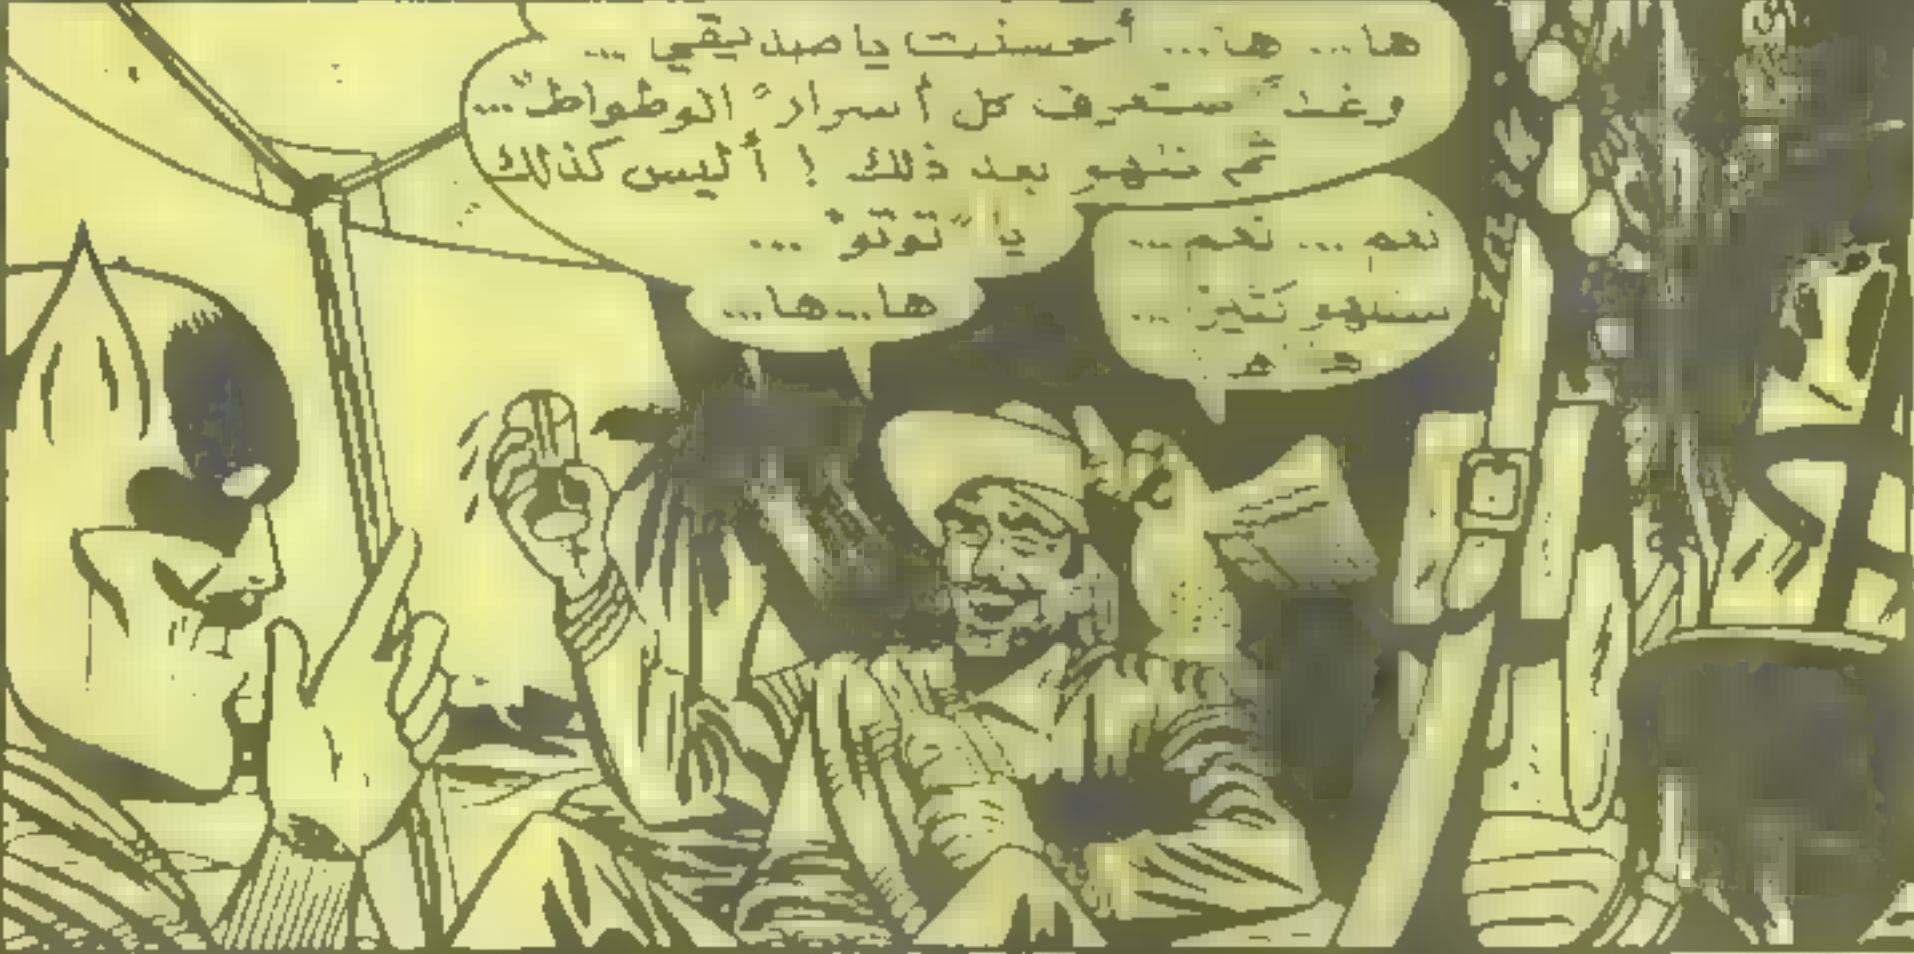 ها... ها... أحسنت يا صديقي ...
وغداً ستعرف كل أسرار "الوطواط"...
ثم ننهو بعد ذلك ! أليس كذلك
يا "توتو" ...
ها...ها...
نعم ... نعم ...
سنلهو كثيراً ...
هـ هـ